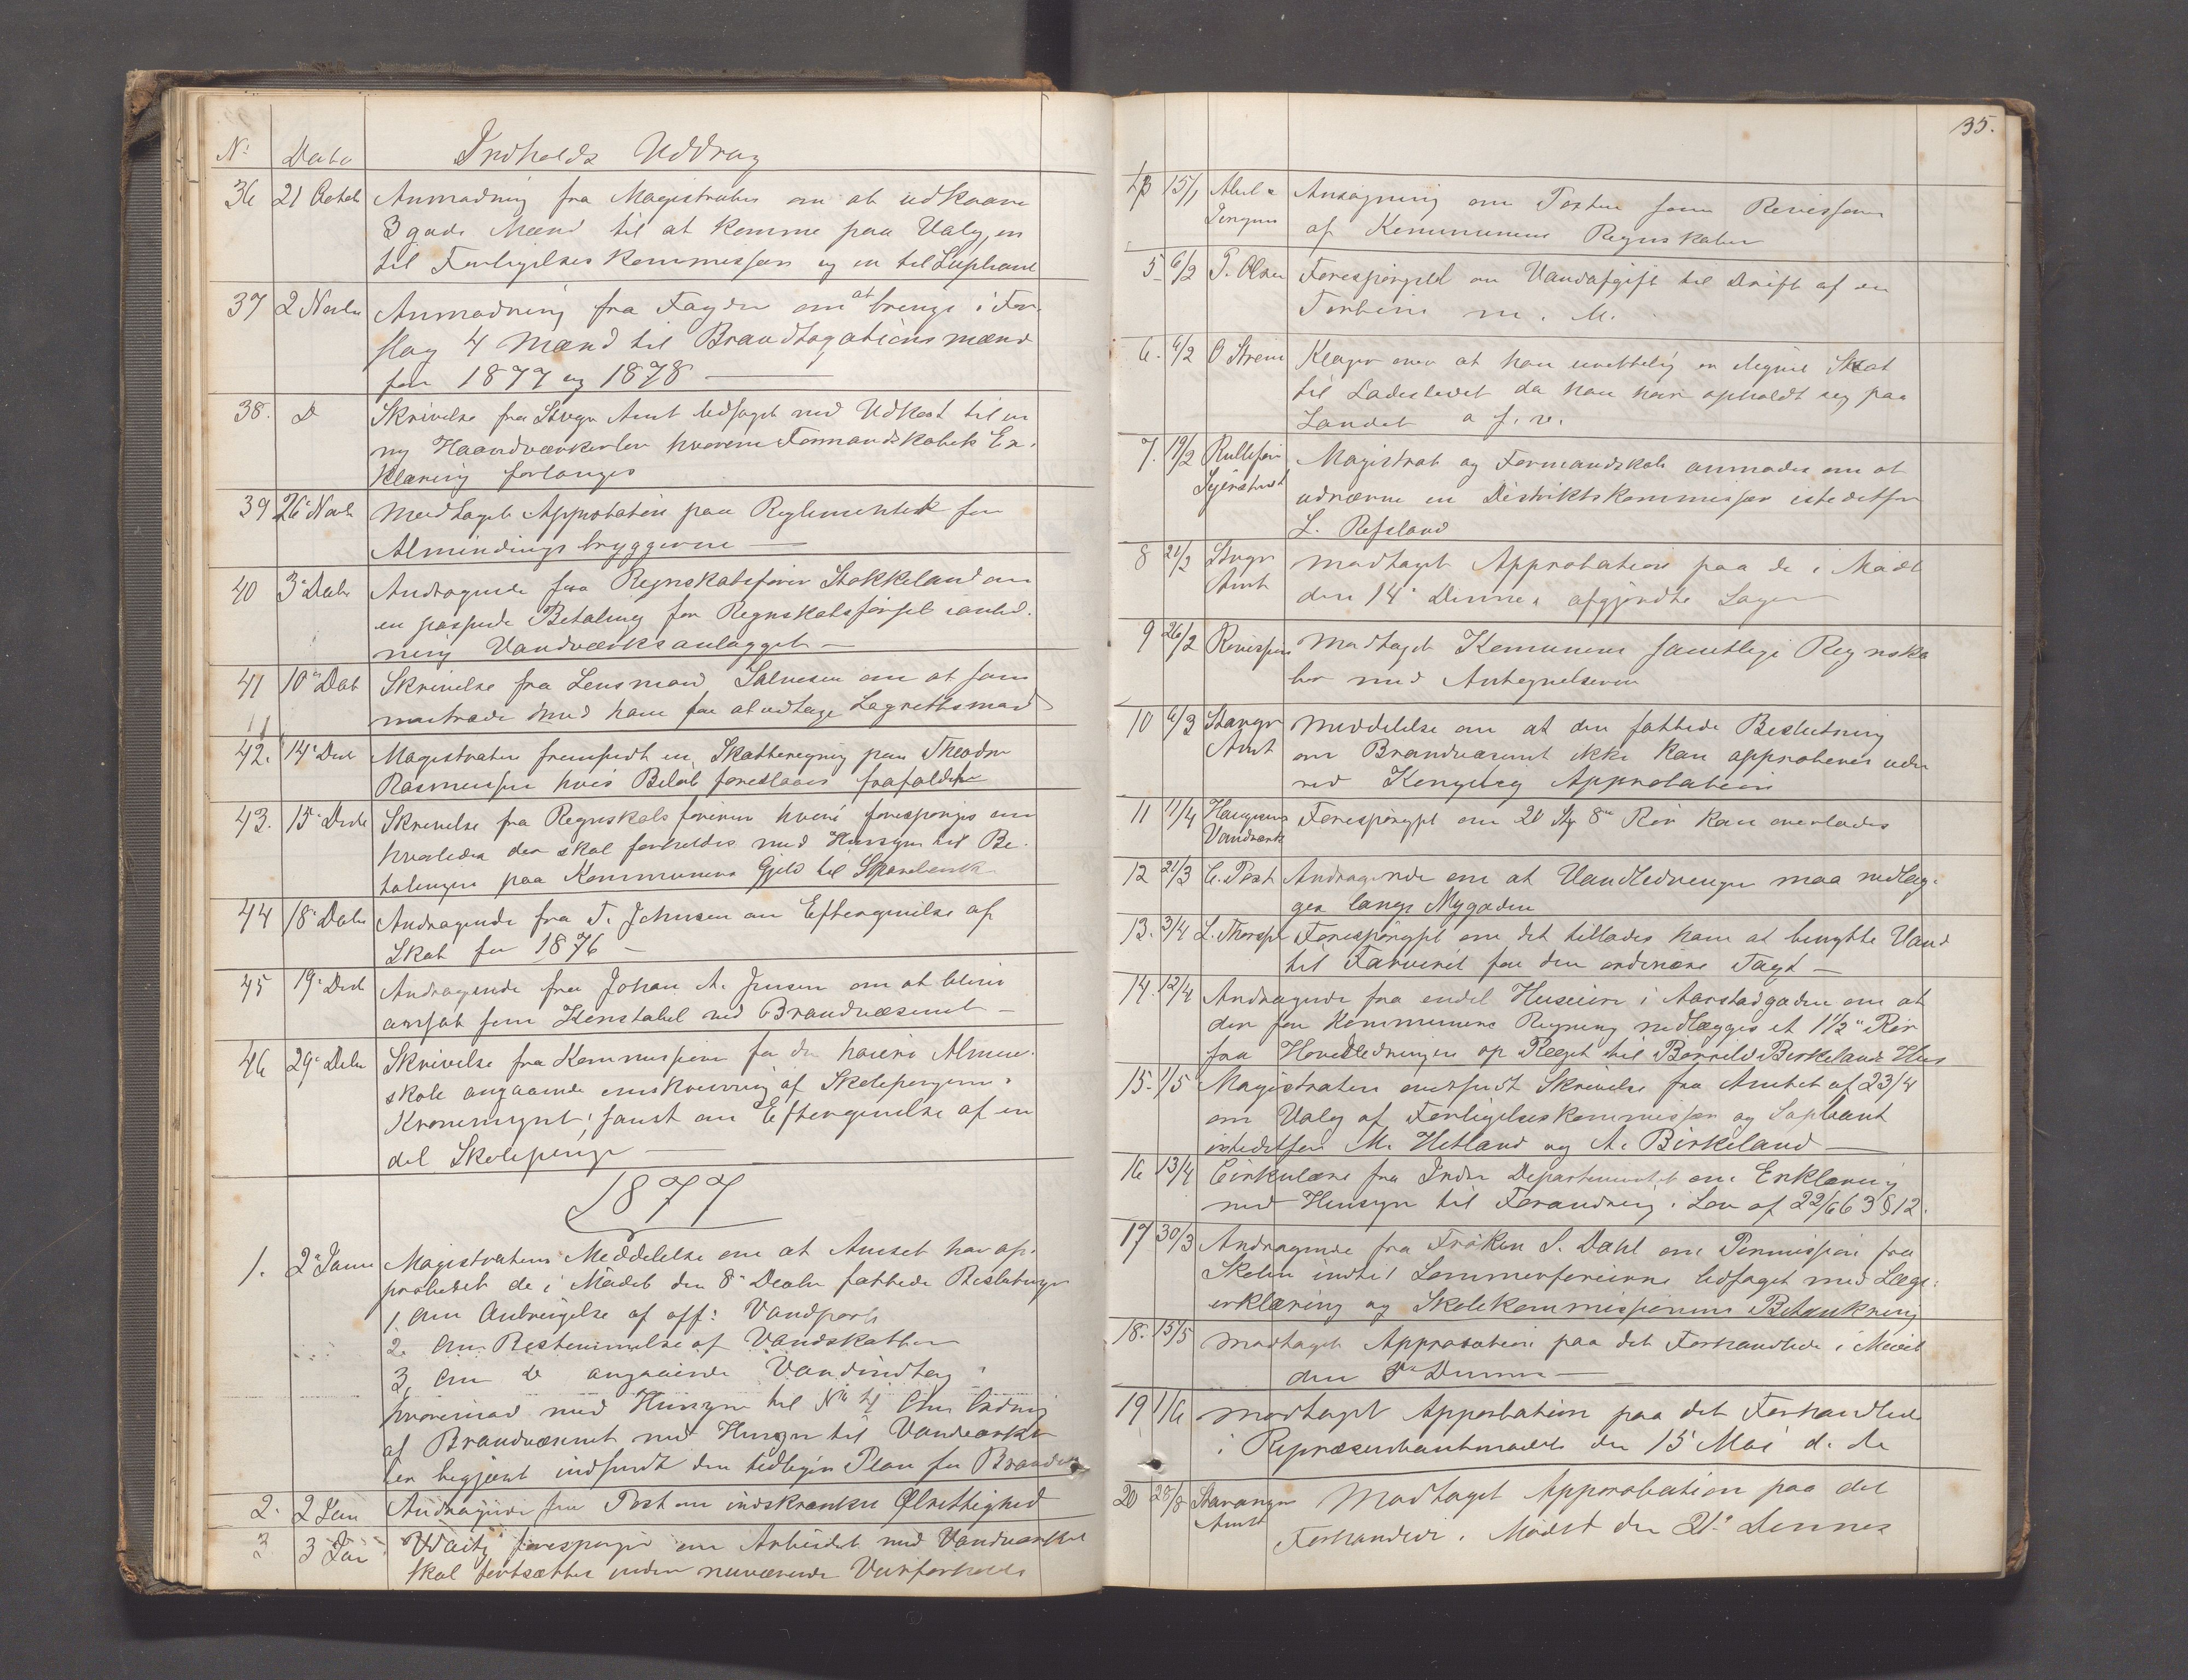 No Dato Indholds Uddrag
36 21 Octob Anmodning fra Magistraten om at udkaare
3 gode Mænd til at komme paa Valg, en
til Forligelses Kommissær og en til Supleant
37 2 Novbr Anmodning fra Fogden om at bringe i For-
slag 4 Mænd til Brandtaxationsmænd
for 1877 og 1878
38. D Skrivelse fra Stvgr Amt ledsaget med Udkast til en
ny Haandværkerlov hvorom Formandskabets Er-
klæring forlanges
39 26 Novb Modtaget Approbation paa Reglementet for
Almindings bryggerne
40 3 Decbr Andragende fra Regnskabsfører Stokkeland om
en passende Betaling for Regnskabsførsel i anled-
ning Vandværksanlægget
41 10 Decb Skrivelse fra Lensmand Salvesen om at sam
mentræde med ham for at udtage Lagrettesmænd
42. 14 Decb Magistraten fremsendt en Skatteregning paa Theodor
Rasmussen hvis Beløb foreslaaes frafaldt
43. 15 Decbr Skrivelse fra Regnskabsføreren hvori forespørges om
hvorledes der skal forholdes med Hensyn til Be-
talingen paa Kommunens Gjeld til Sparebank
44 18 Decbr Andragende fra T. Johnsen om Eftergivelse af
Skat for 1876
45 19 Decb Andragende fra Johan A. Jensen om at blive
ansat som Konstabel ved Brandvæsenet
46 29 Decbr Skrivelse fra Kommissionen for den høiere Almue-
skole angaaende omskrivning af Skolepengene i
Kronemynt, samt om Eftergivelse af en
del Skolepenge
1877
1. 2 Janr Magistratens Meddelelse om at Amtet har ap-
proberet de i Mødet den 8 Decbr fattede Beslutninger
1, Om Anbringelse af off: Vandposts
2. Om Bestemmelse af Vandskatten
3, Om D angaaende Vandindtag
hvorimod med Hensyn til No 4 Om Ordning
af Brandvæsenet med Hensyn til Vandværket
er begjært indsendt den tidligere Plan for Brandv
2. 2 Jan Andragende fra Post om indskrænket Ølrettighed
3 3 Jan Waity forespørger om Arbeidet med Vandværket
skal fortsættes under nuværende Veirforholde
35.
15/1 Ansøgning om Posten som Revissor
af Kommunens Regnskaber
5 6/2 P. Olsen Forespørgsel om Vandafgift til Drift af en
Turbine m. M.
6. 6/2 O Strøm Klager over at han urettelig er ilignet Skat
til Ladestedet da han har opholdt sig paa
Landet o. s. v.
7. 19/2 Magistrat og Formandskab anmodes om at
udnævne en Distriktskommissær istedetfor
L. Refsland
8 21/2 Stvgr
Amt Modtaget Approbation paa de i Mødet
den 14 Dennes afgjordte Sager
9 26/2 Revissjon Modtaget Komunens samtlige Regnska
ber med Antegnelserne
10 6/3 Stavgr
Amt Meddelelse om at den fattede Beslutning
om Brandvæsenet ikke kan approberes uden
ved Kongelig Approbation
11 11/4 Haugesunds
Vandværk Forespørgsel om 20 St 8" Rør kan overlades
12 21/3 C. Post Andragende om at Vandledningen maa nedlæg-
ges langs Nygaden
13. 3/4 L. Thorsen Forespørgsel om det tillades ham at benytte Vand
til Farveriet for den ordinære Taxt
14. 12/4 Andragende fra endel Huseiere i Aarstadgaden om at
der for Kommunens Regning nedlægges et 1 1/2" Rør
fra Hovedledningen op Bakket til Borrild Birkelands Hus
15. 1/5 Magistraten oversendt Skrivelse fra Amtet af 23/4
om Valg af Forligelseskommissær og Supleant
istedetfor M. Hetland og A. Birkeland
16 13/4 Cirkulære fra Indre Departementet om Erklæring
med Hensyn til Forandring i Lov af 22/6 63 § 12.
17 30/3 Andragende fra Frøken S. Dahl om Permission fra
Skolen indtil Sommerferierne ledsaget med Læge-
erklæring og Skolekommissionens Betænkning
18. 15/5 Modtaget Approbation paa det Forhandlede i Mødet
den 8de Dennes
19 1/6 Modtaget Approbation paa det Forhandlede
i Repræsentantmødet den 15 Mai d. A
20 28/8 Stavanger
Amt Modtaget Approbation paa det
Forhandlede i Mødet den 21 Dennes